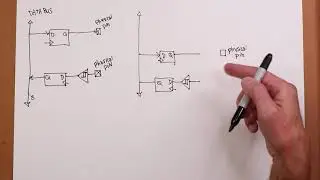 DATA BUS
PHYSICAL
PIN
D Q
PHYSICAL
PIN
Q D
8
D Q
Q D
PHYSICAL
PIN